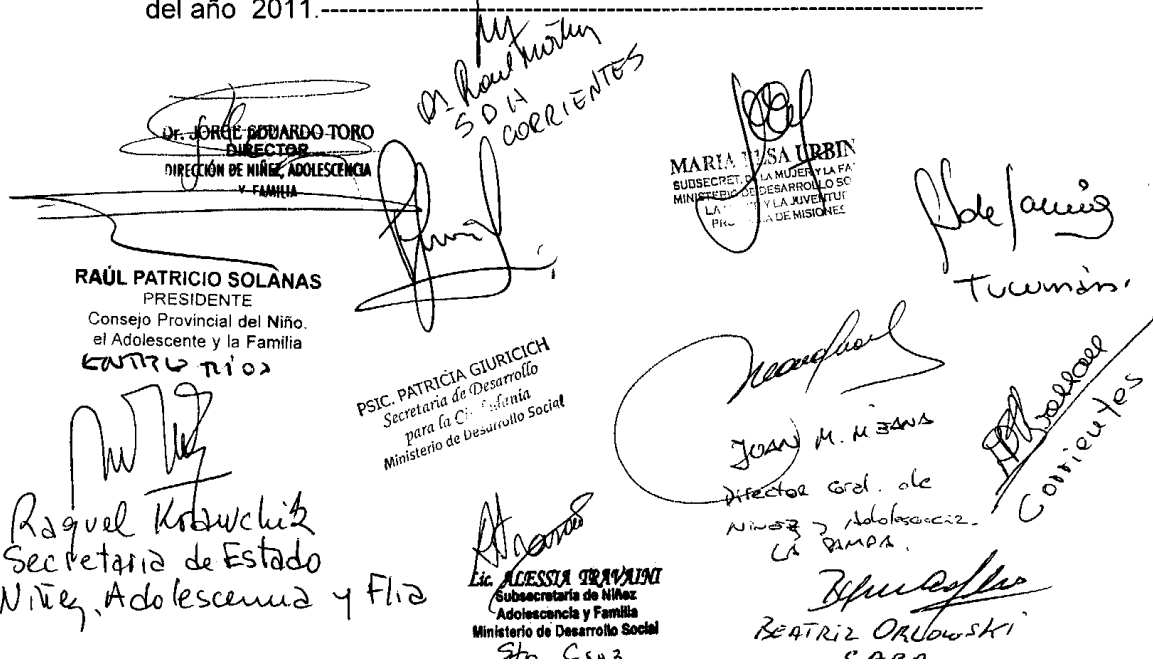 del año 2011.-----------------------------------------------------------------------
Dr. Raul
SDH
CORRIENTES
Dr. JORGE EDUARDO TORO
DIRECTOR
DIRECCIÓN DE NIÑEZ, ADOLESCENCIA
Y FAMILIA
MARIA ELSA URBIN
SUBSECRET. DE LA MUJER Y LA FA
MINISTERIO DE DESARROLLO SO
LA Y LA JUVENTUD
DE MISIONES
Tucumán.
RAÚL PATRICIO SOLANAS
PRESIDENTE
Consejo Provincial del Niño.
el Adolescente y la Familia
ENTRE RIOS
PSIC. PATRICIA GIURICICH
Secretaria de Desarrollo
para la Ciudadanía
Ministerio de Desarrollo Social
JUAN M.
Director Gral. de
Niñez y Adolescencia.
LA PAMPA.
Corrientes
Raquel
Secretaria de Estado
Niñez, Adolescencia y Flia
Lic. ALESSIA TRAVAINI
Subsecretaria de Niñez
Adolescencia y Familia
Ministerio de Desarrollo Social
Sta Cruz
BEATRIZ ORLOWSKI